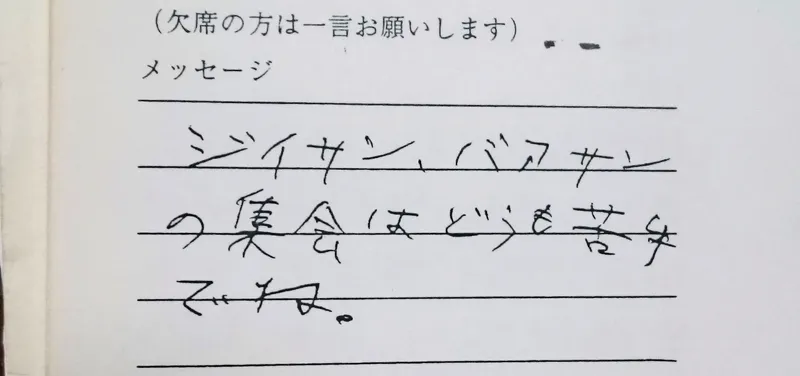 （欠席の方は一言お願いします）
メッセージ
ジイサン、バアサン
の集会はどうも苦手
でね。